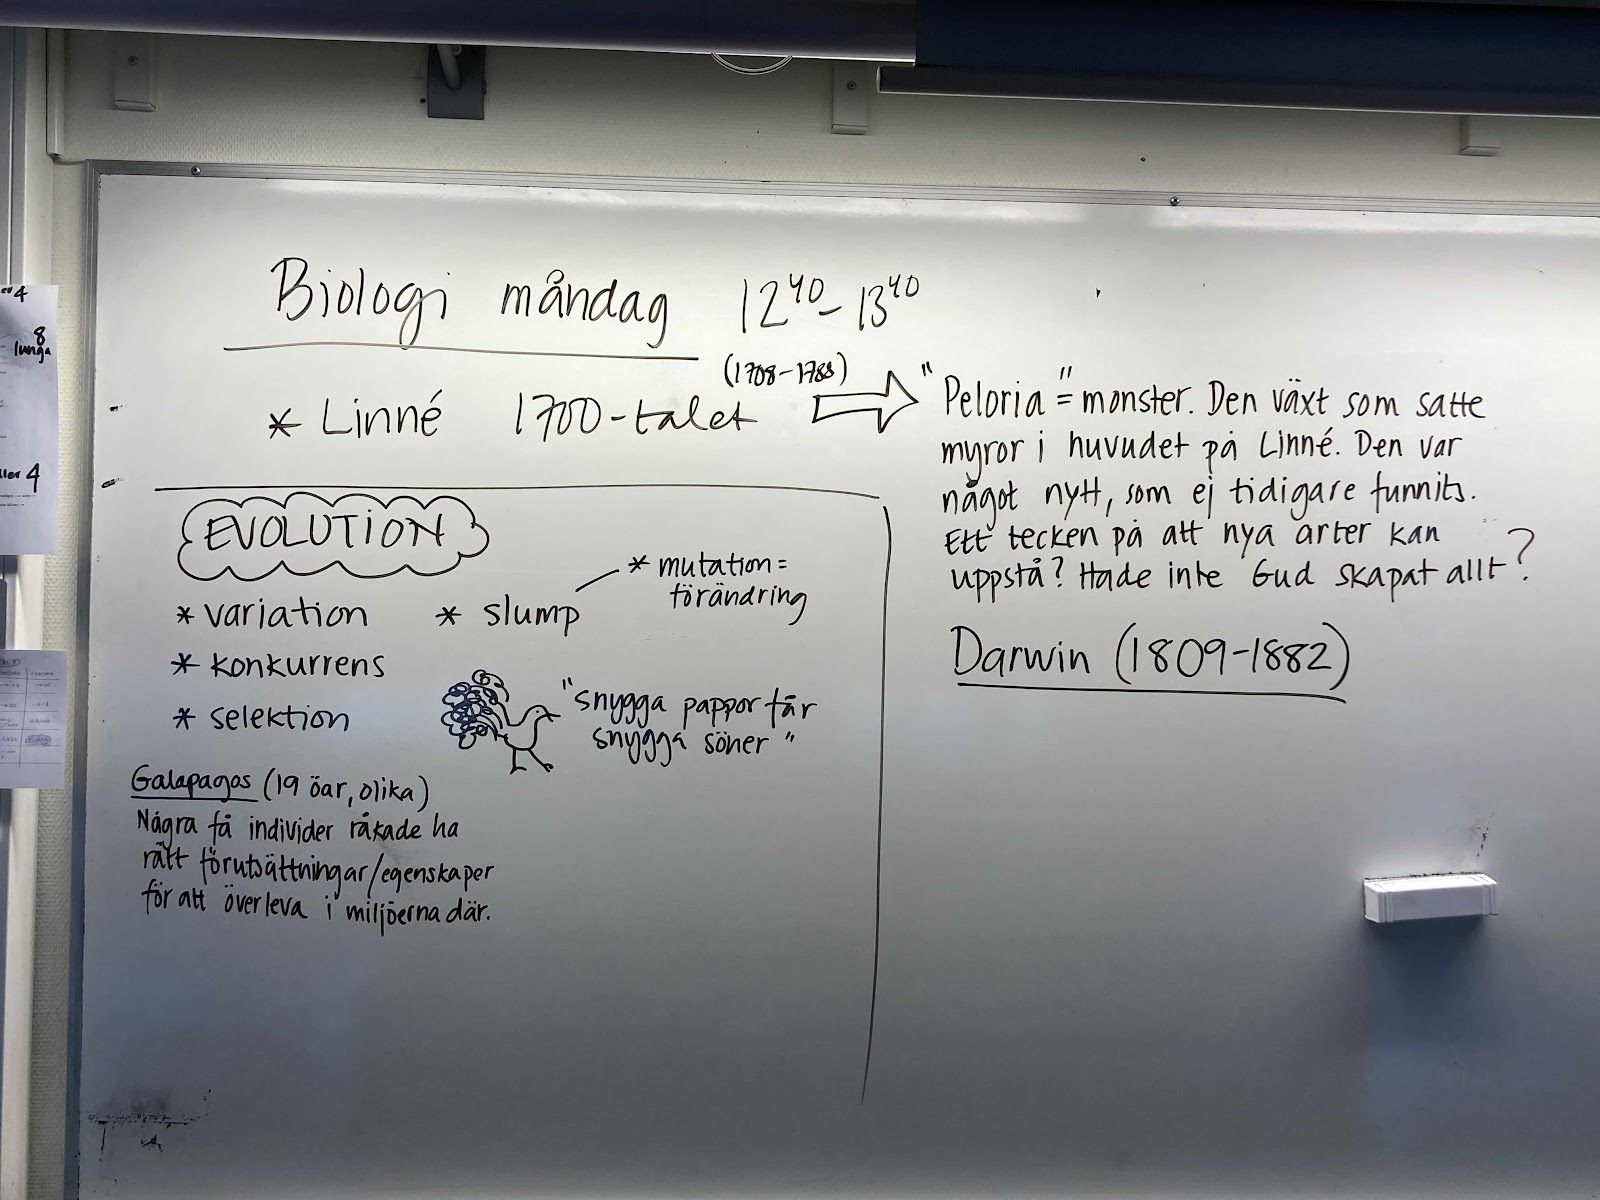 Biologi måndag 12⁴⁰ - 13⁴⁰
* Linné 1700-talet
(1708-1788)
"Peloria" = monster. Den växt som satte
myror i huvudet på Linné. Den var
något nytt, som ej tidigare funnits.
Ett tecken på att nya arter kan
uppstå? Hade inte Gud skapat allt?
Darwin (1809-1882)
EVOLUTION
* variation
* konkurrens
* selektion
* slump
* mutation =
förändring
"snygga pappor får
snygga söner"
Galapagos (19 öar, olika)
Några få individer råkade ha
rätt förutsättningar/egenskaper
för att överleva i miljöerna där.
4
8
lunga
4